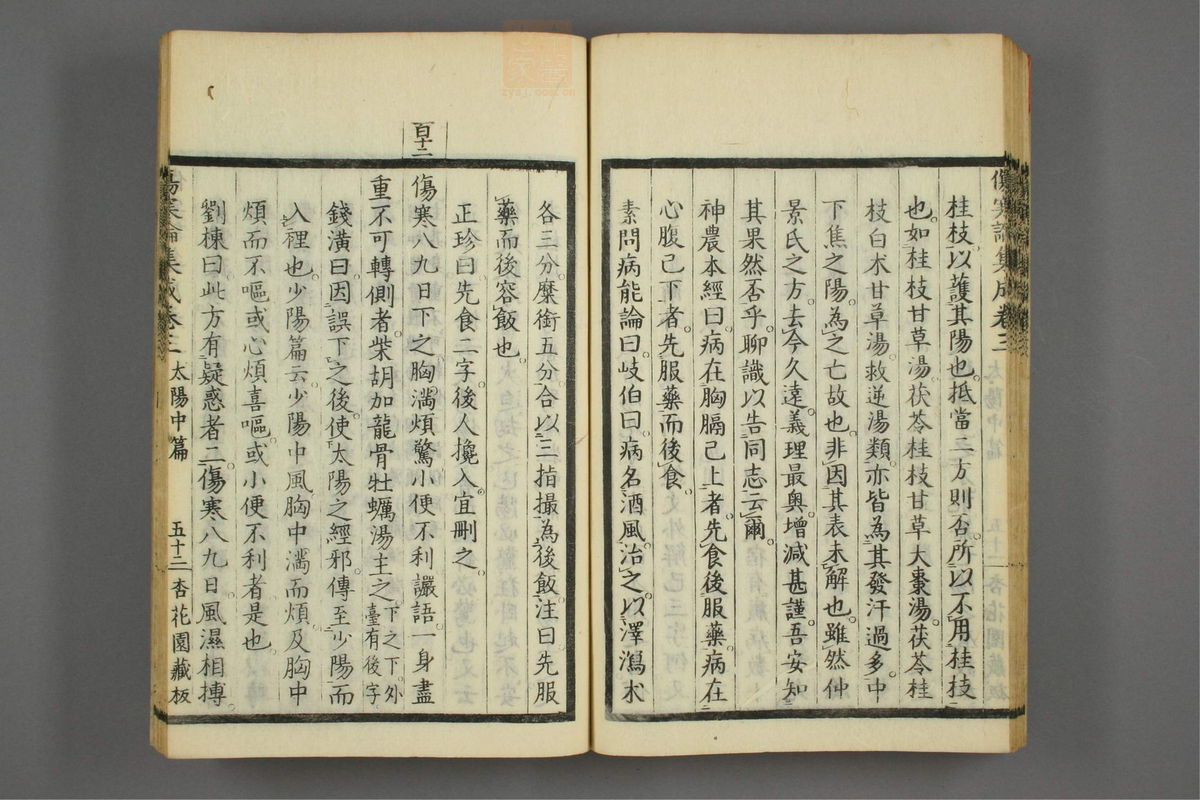 傷寒論集成卷三
桂枝以護其陽也抵當二方則否所以不用桂枝
也如桂枝甘草湯茯苓桂枝甘草大棗湯茯苓桂
枝白朮甘草湯救逆湯類亦皆為其發汗過多中
下焦之陽為之亡故也非因其表未解也雖然仲
景氏之方去今久遠義理最奧增減甚謹吾安知
其果然否乎聊識以告同志云爾
神農本經曰病在胸膈已上者先食後服藥病在
心腹已下者先服藥而後食
素問病能論曰岐伯曰病名酒風治之以澤瀉朮
各三分麋銜五分合以三指撮為後飯注曰先服
藥而後容飯也
正珍曰先食二字後人攙入宜刪之
百十二
傷寒八九日下之胸滿煩驚小便不利讝語一身盡
重不可轉側者柴胡加龍骨牡蠣湯主之下之下外
臺有後字
錢潢曰因誤下之後使太陽之經邪傳至少陽而
入裡也少陽篇云少陽中風胸中滿而煩及胸中
煩而不嘔或心煩喜嘔或小便不利者是也
劉棟曰此方有疑惑者二傷寒八九日風濕相摶
傷寒論集成卷三 太陽中篇 五十二 杏花園藏板